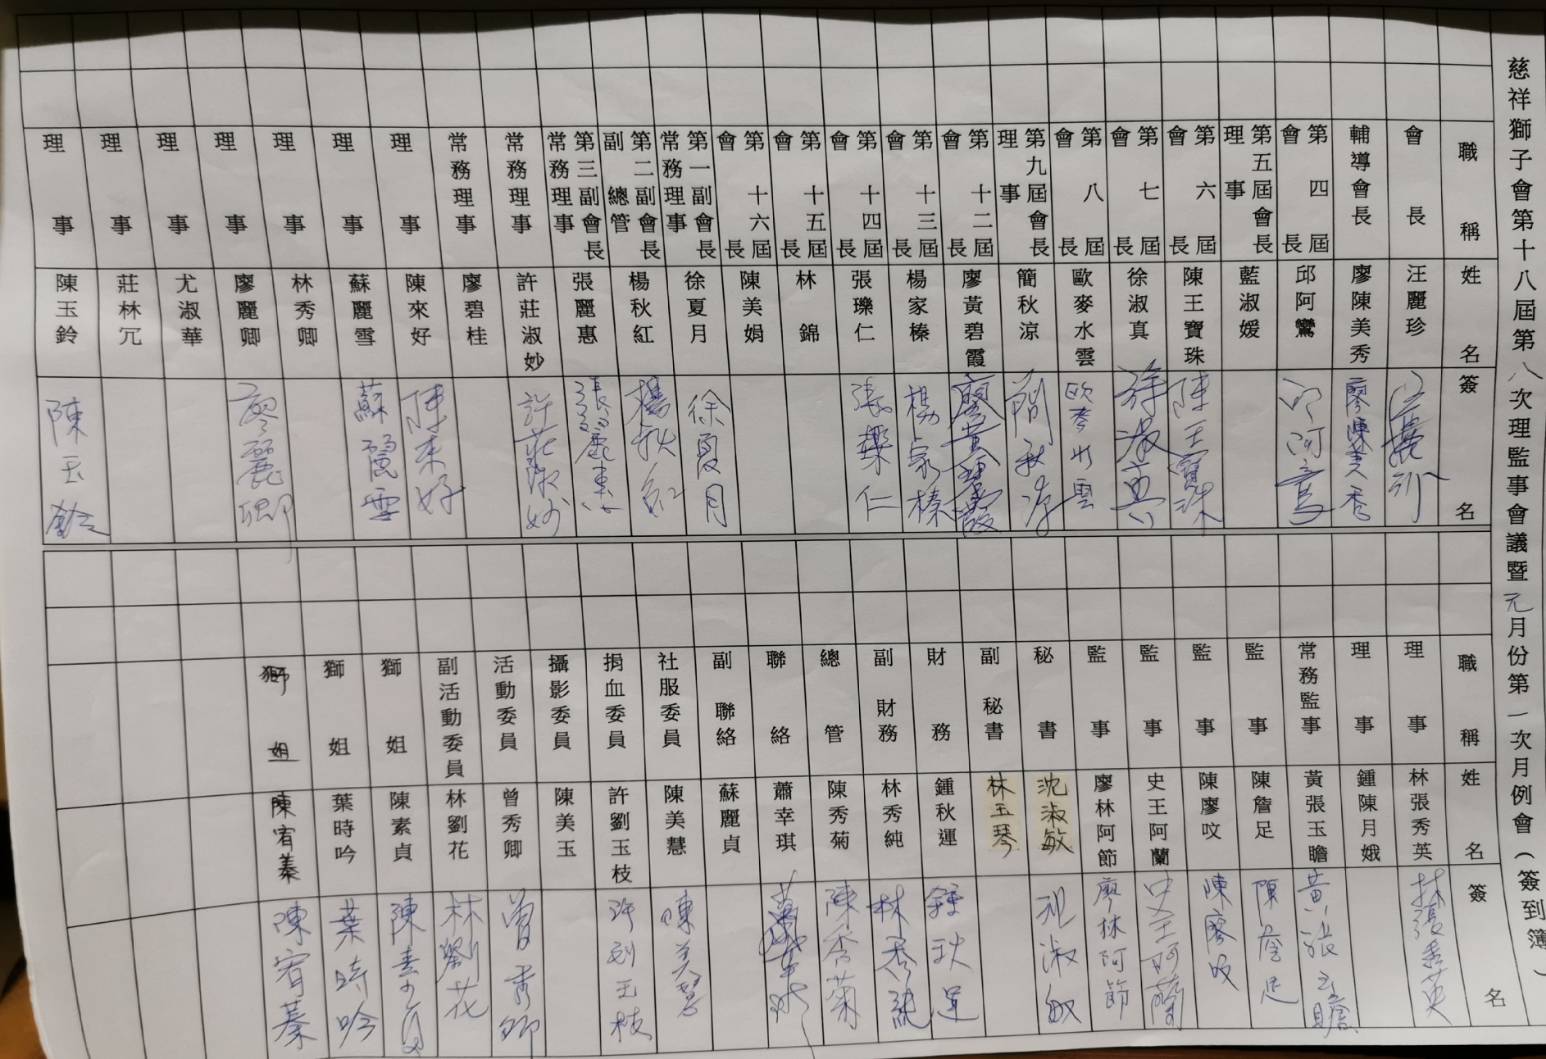 慈祥獅子會第十八屆第八次理監事會議暨元月份第一次月例會（簽到簿）
職稱 姓名 簽名
會長 汪麗珍 汪麗珍
輔導會長 廖陳美秀 廖陳美秀
第四屆會長 邱阿鸞 邱阿鸞
第五屆會長理事 藍淑媛
第六屆會長 陳王寶珠 陳王寶珠
第七屆會長 徐淑真 徐淑真
第八屆會長 歐麥水雲 欧麥水雲
第九屆會長理事 簡秋涼 簡秋涼
第十二屆會長 廖黃碧霞 廖黃碧霞
第十三屆會長 楊家榛 楊家榛
第十四屆會長 張瓅仁 張樂仁
第十五屆會長 林錦
第十六屆會長 陳美娟
第一副會長常務理事 徐夏月 徐夏月
第二副會長副總管 楊秋紅 楊秋紅
第三副會長常務理事 張麗惠 張麗惠
常務理事 許莊淑妙 許莊淑妙
常務理事 廖碧桂
理事 陳來好 陳来好
理事 蘇麗雪 蘇麗雪
理事 林秀卿
理事 廖麗卿 廖麗卿
理事 尤淑華
理事 莊林冗
理事 陳玉鈴 陳玉鈴
職稱 姓名 簽名
理事 林張秀英 林張秀英
理事 鍾陳月娥
常務監事 黃張玉瞻 黃張玉瞻
監事 陳詹足 陳詹足
監事 陳廖呅 陳廖呅
監事 史王阿蘭 史王阿蘭
監事 廖林阿節 廖林阿節
秘書 沈淑敏 沈淑敏
副秘書 林玉琴
財務 鍾秋運 鍾秋運
副財務 林秀純 林秀純
總管 陳秀菊 陳秀菊
聯絡 蕭幸琪 蕭幸琪
副聯絡 蘇麗貞
社服委員 陳美慧 陳美慧
捐血委員 許劉玉枝 許刘玉枝
攝影委員 陳美玉
活動委員 曾秀卿 曾秀卿
副活動委員 林劉花 林劉花
獅姐 陳素貞 陳素貞
獅姐 葉時吟 葉時吟
獅姐 陳宥蓁 陳宥蓁